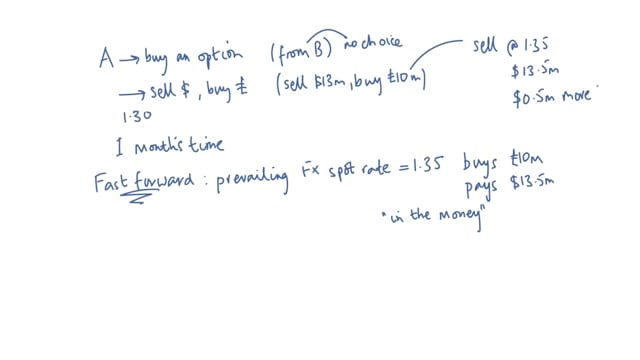 A → buy an option (from B) no choice
sell @ 1.35
→ sell $, buy £ (sell $13m, buy £10m)
$13.5m
1.30
$0.5m more
1 month's time
Fast forward : prevailing FX spot rate = 1.35 buys £10m
pays $13.5m
"in the money"